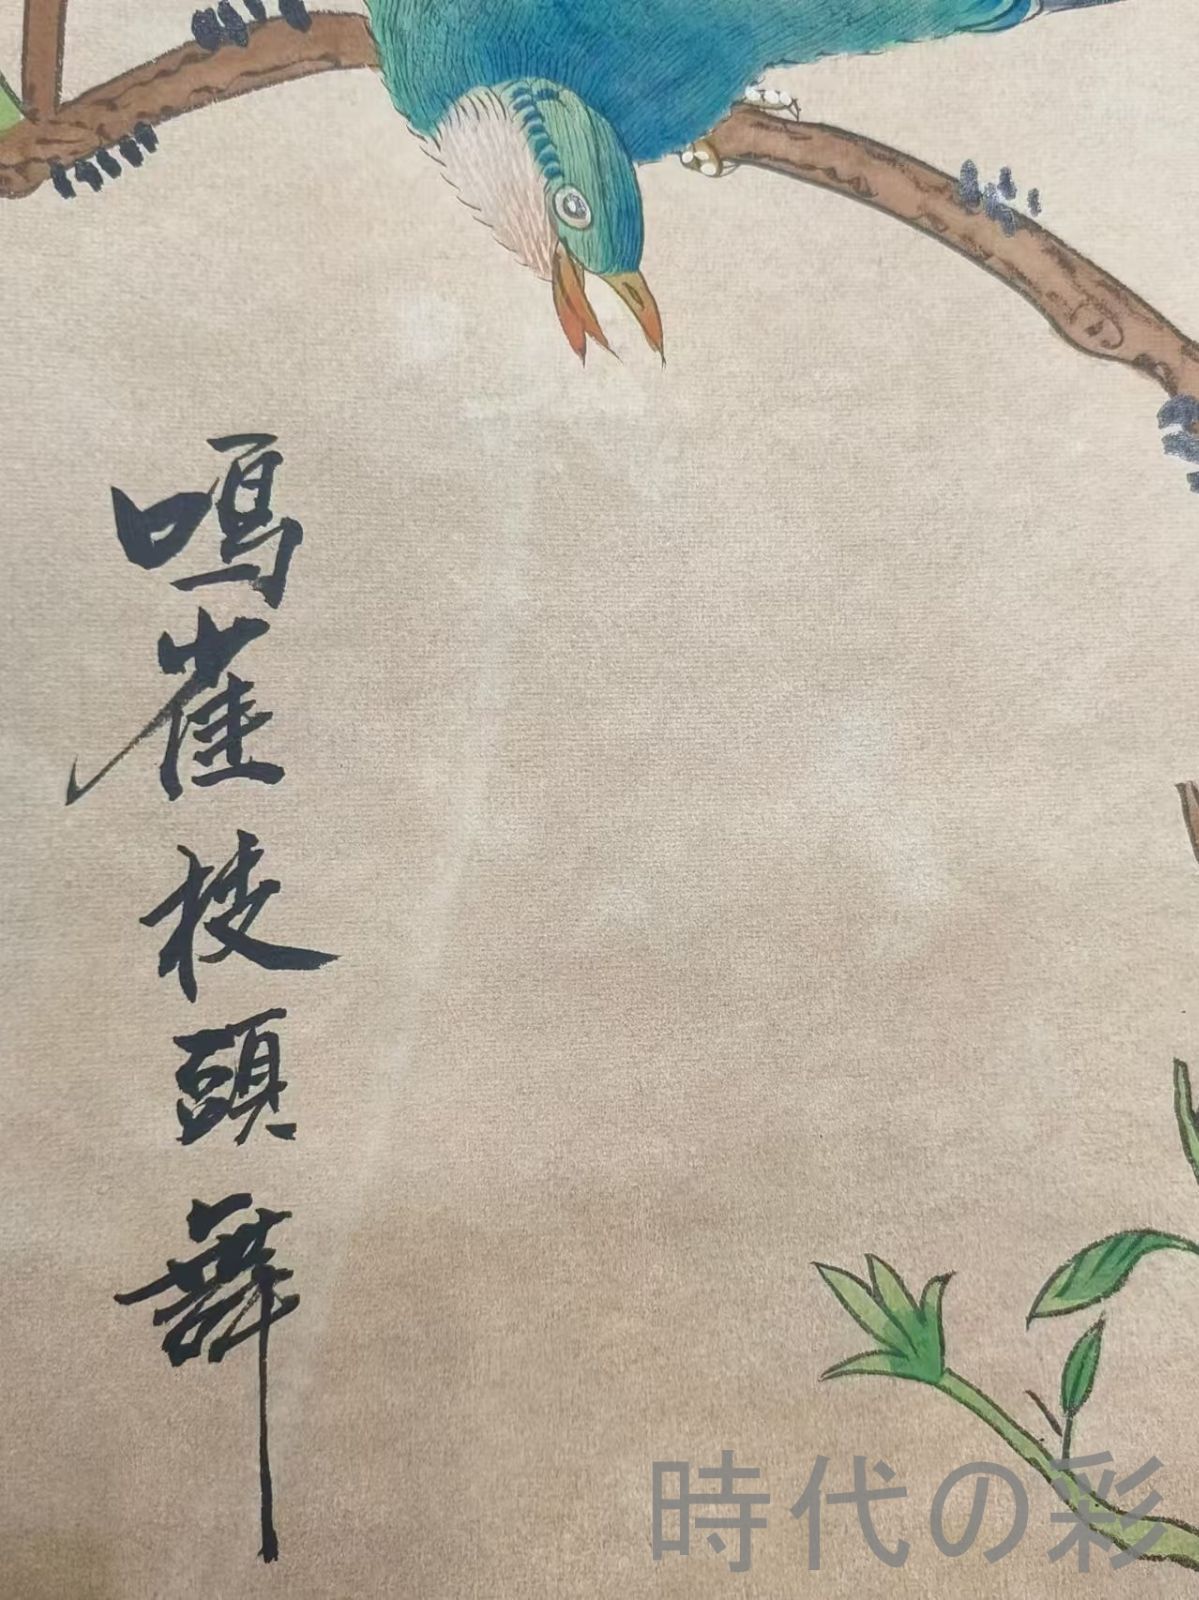 鳴雀枝頭舞
時代の彩